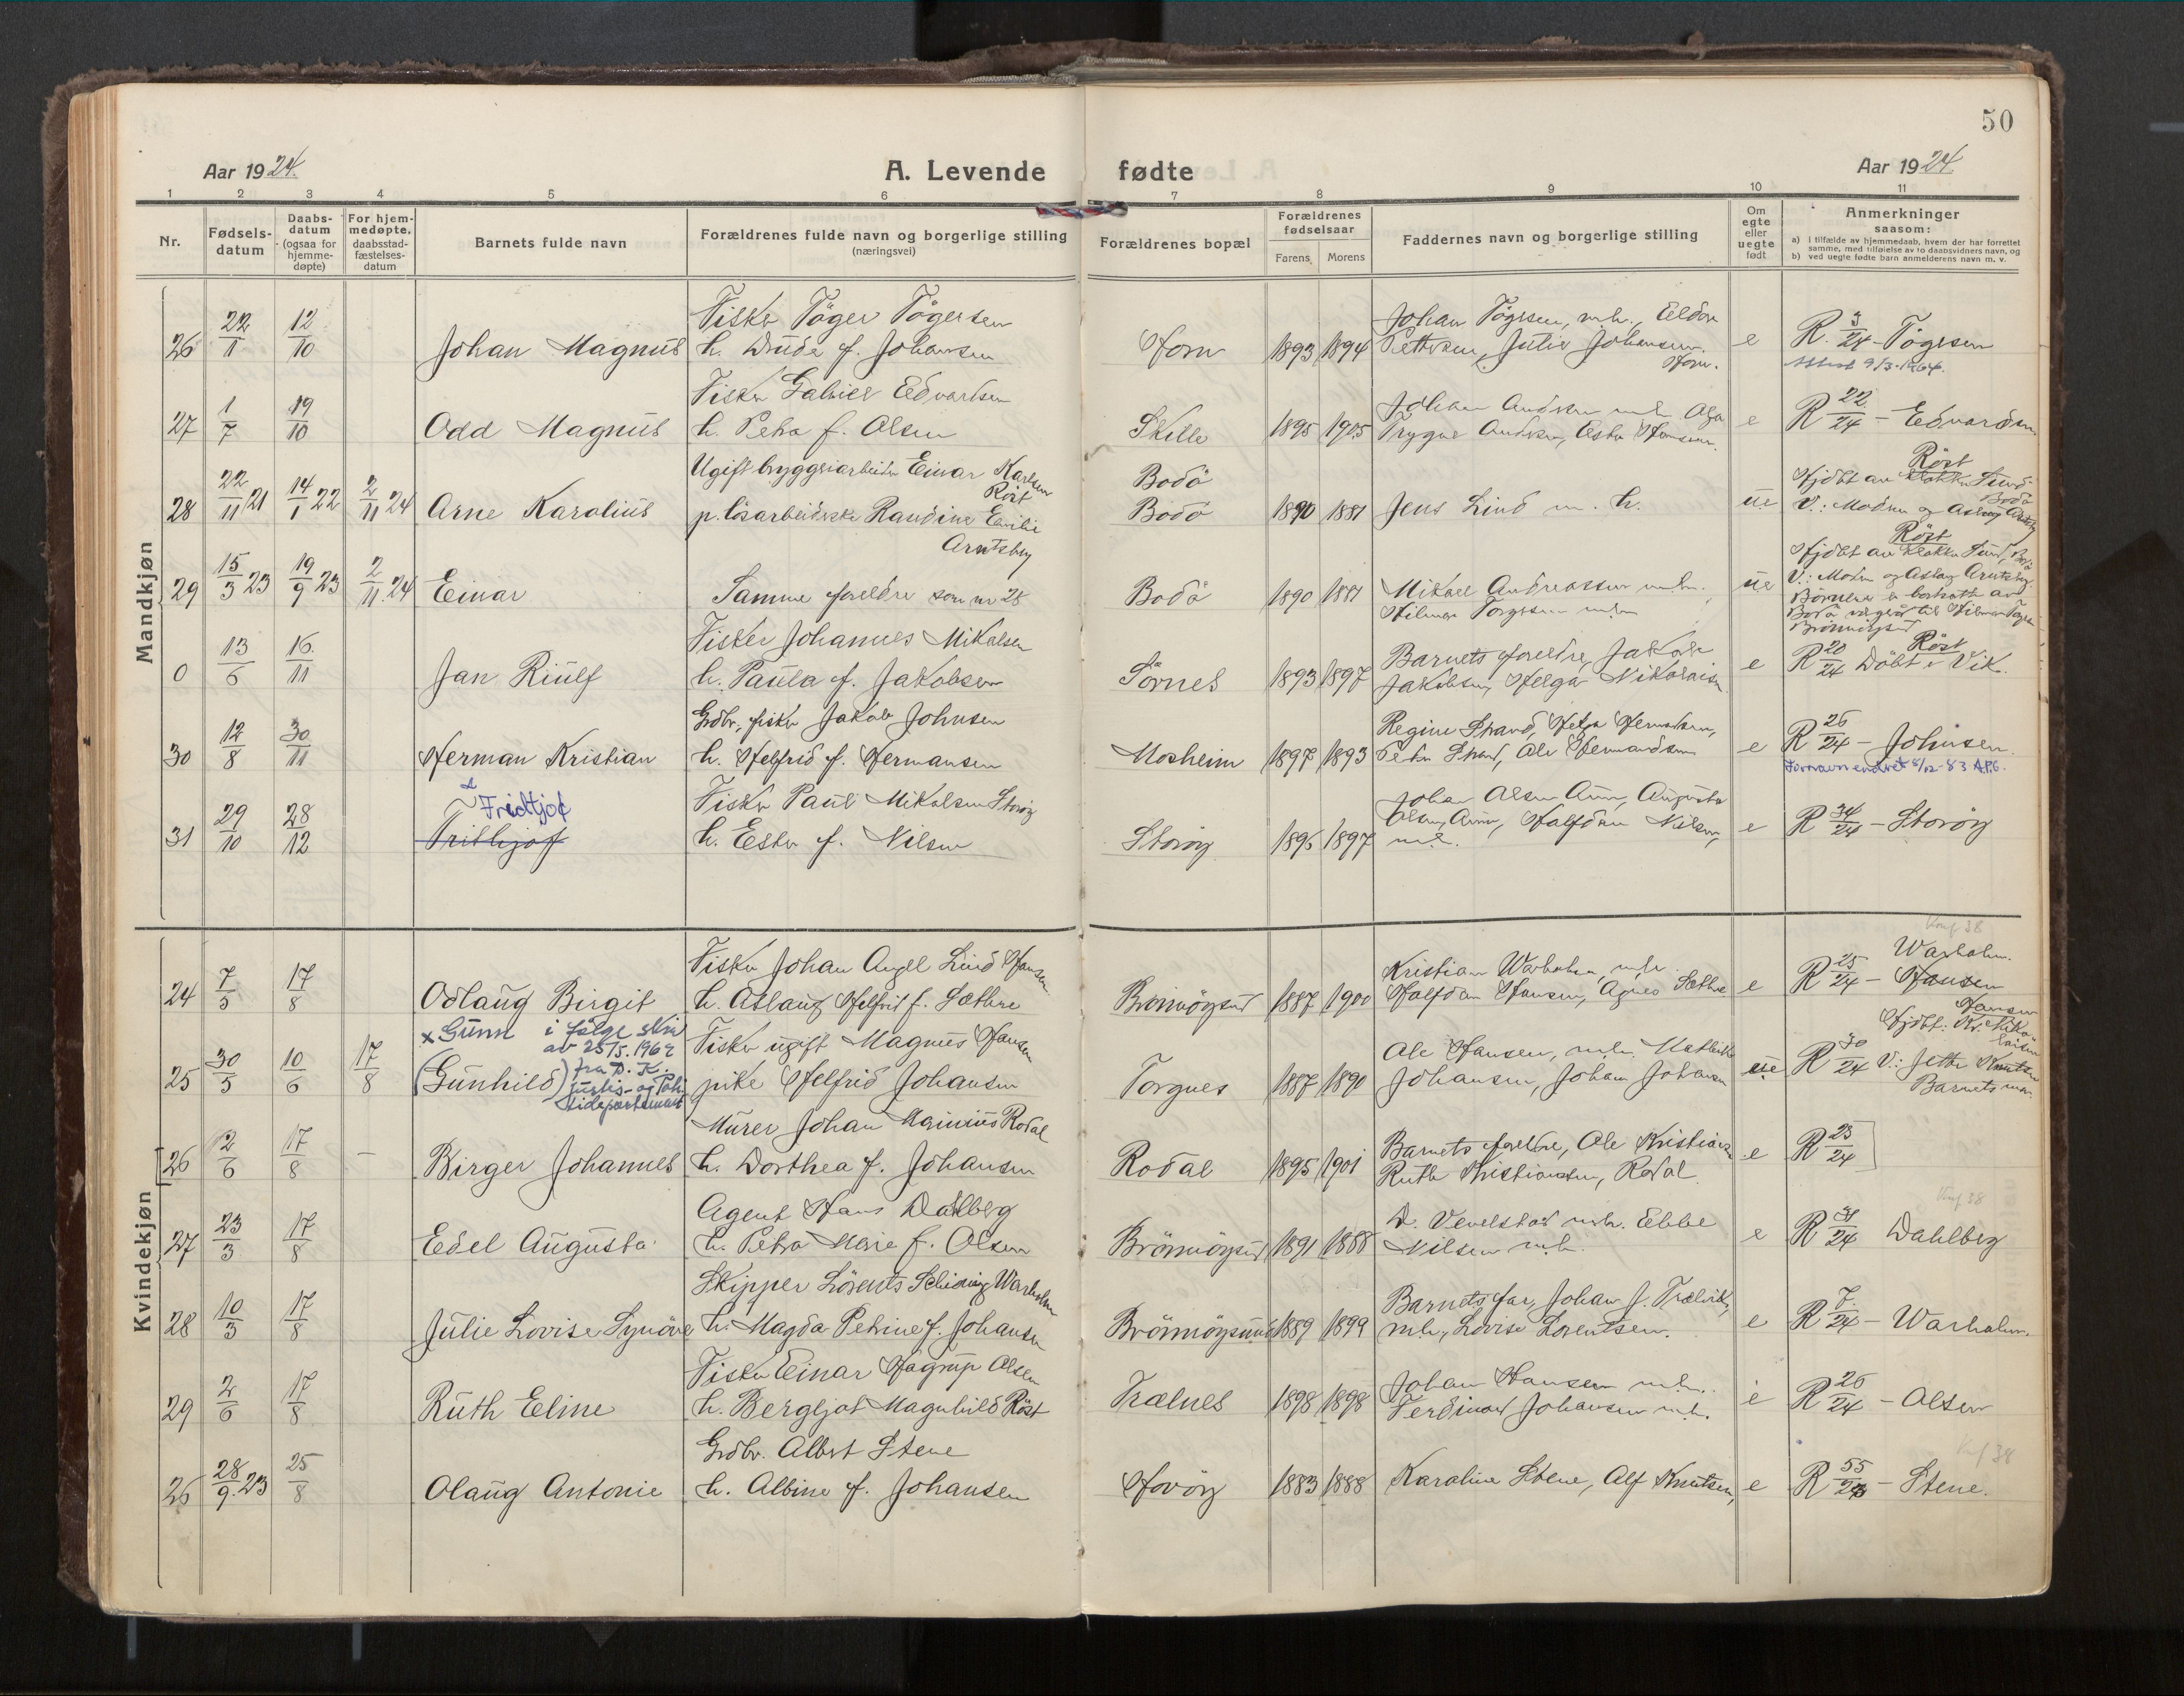 50
Aar 1924.
A. Levende fødte
Aar 1924
1 2 3 4 5 6 7 8 9 10 11
Nr.
Fødsels-
datum
Daabs-
datum
(ogsaa for
hjemme-
døpte)
For hjem-
medøpte,
daabsstad-
fæstelses-
datum
Barnets fulde navn
Forældrenes fulde navn og borgerlige stilling
(næringsvei)
Forældrenes bopæl
Forældrenes
fødselsaar
Farens Morens
Faddernes navn og borgerlige stilling
Om
egte
eller
uegte
født
Anmerkninger
saasom:
a) i tilfælde av hjemmedaab, hvem der har forrettet
samme, med tilføielse av to daabsvidners navn, og
b) ved uegte fødte barn anmelderens navn m. v.
Mandkjøn
26 22/1 12/10 Johan Magnus
Fisker Töger Tögersen
h. Drude f. Johansen
Horn 1893 1894
Johan Tögersen, m.h., Eldor
Pettersen, Julie Johansen.
Horn.
e R. 3/24 - Tögersen
27 1/7 19/10 Odd Magnus
Fisker Gabriel Edvartsen
h. Petra f. Olsen
Skille 1895 1905
e R 22/24 - Edvardsen
28 22/11 21 14/1 22 2/11 24 Arne Karolius
Ugift bryggeriarbeider Einar Karlsen
Röst
p. lösarbeiderske Randine Emilie
Arntsberg
Bodö
Bodö 1890 1881
Jens Lind m. h.
ue
Röst
Hjdbt av klokker Sund
Bodö
V.: Modren og Aslaug Arntsberg
29 15/3 23 19/9 23 2/11 24 Einar
Samme foreldre som nr 28
Bodö 1890 1881
Mikael Andreassen m.h.
Hilmar Torgersen m.h.
ue
Röst
Hjdbt av klokker Sund, Bodö
V.: Modren og Aslaug Arntsberg.
Brönnöysund
0 13/6 16/11 Jan Riulf
Fisker Johannes Mikalsen
h. Paula f. Jakobsen
Sörnes 1893 1897
Barnets foreldre, Jakob
Jakobsen, Helga Nikolaisen
e
Röst
R 20/24 Döbt i Vik.
30 12/8 30/11 Herman Kristian
Grdbr., fisker Jakob Johnsen
h. Helfrid f. Hermansen
Mosheim 1897 1893
Regine Strand, Helga Hermansen,
Peder Strand, Ole Hermansen
e R 26/24 - Johnsen.
Fornavn endret 8/12-83 A.P.G.
31 29/10 28/12 Fridtjof
Frithjof
Fisker Paul Mikalsen Storöy
h. Ester f. Nilsen
Storöy 1895 1897
Johan Olsen Aune, Augusta
Olsen, Aune, Halfdan Nilsen,
m.h.
e R 34/24 - Storöy
Kvindekjøn
24 7/5 17/8 Odlaug Birgit
Fisker Johan Angell Lind Hansen
h. Aslaug Helfrid f. Sæthre
Brönnöysund 1887 1900
Kristian Warholm, m.h.
Halfdan Hansen, Agnes Sæthre
e
Konf 38
Warholm.
R 25/24 - Hansen
25 30/5 10/6 17/8
x Gunn i fölge skriv
av 25/5.1962
(Gunhild) fra D. K.
justis- og Poli
tidepartement
Fisker ugift Magnus Hansen
pike Helfrid Johansen
Torgnes 1887 1890
Ole Hansen, m.h. Mathilde
Johansen, Johan Johansen
ue
Hansen
Hjdbt: Kr. Nikolaisen
R 30/24 V.: Jette Knutsen
Barnets mor
26 2/6 17/8 — Birger Johannes
Murer Johan Magnus Rodal
h. Dorthea f. Johansen
Rodal 1895 1901
Barnets foreldre, Ole Kristiansen
Ruth Kristiansen, Rodal.
e R 23/24
27 23/3 17/8 Edel Augusta
Agent Hans Dahlberg
h. Petra Marie f. Olsen
Brönnöysund 1891 1888
D. Vevelstad m.h. Ebbe
Nilsen m.h.
e Konf 38
R 31/24 Dahlberg
28 10/3 17/8 Julie Lovise Synöve
Skipper Lorents Schöning Warholm
h. Magda Petrine f. Johansen
Brönnöysund 1889 1899
Barnets far, Johan J. Trælvik,
m.h., Lovise Lorentsen.
e R 7/24 - Warholm.
29 2/6 17/8 Ruth Eline
Fisker Einar Hagrup Olsen
h. Bergljot Magnhild Röst
Trælnes 1898 1898
Johan Hansen m.h.
Ferdinand Johansen m.h.
e R 26/24 - Olsen
26 28/9 23 25/8 Olaug Antonie
Grdbr. Albert Stene
h. Albine f. Johansen
Havöy 1883 1888
Karoline Stene, Alf Knutsen,
e Konf 38
R 55/23 - Stene.